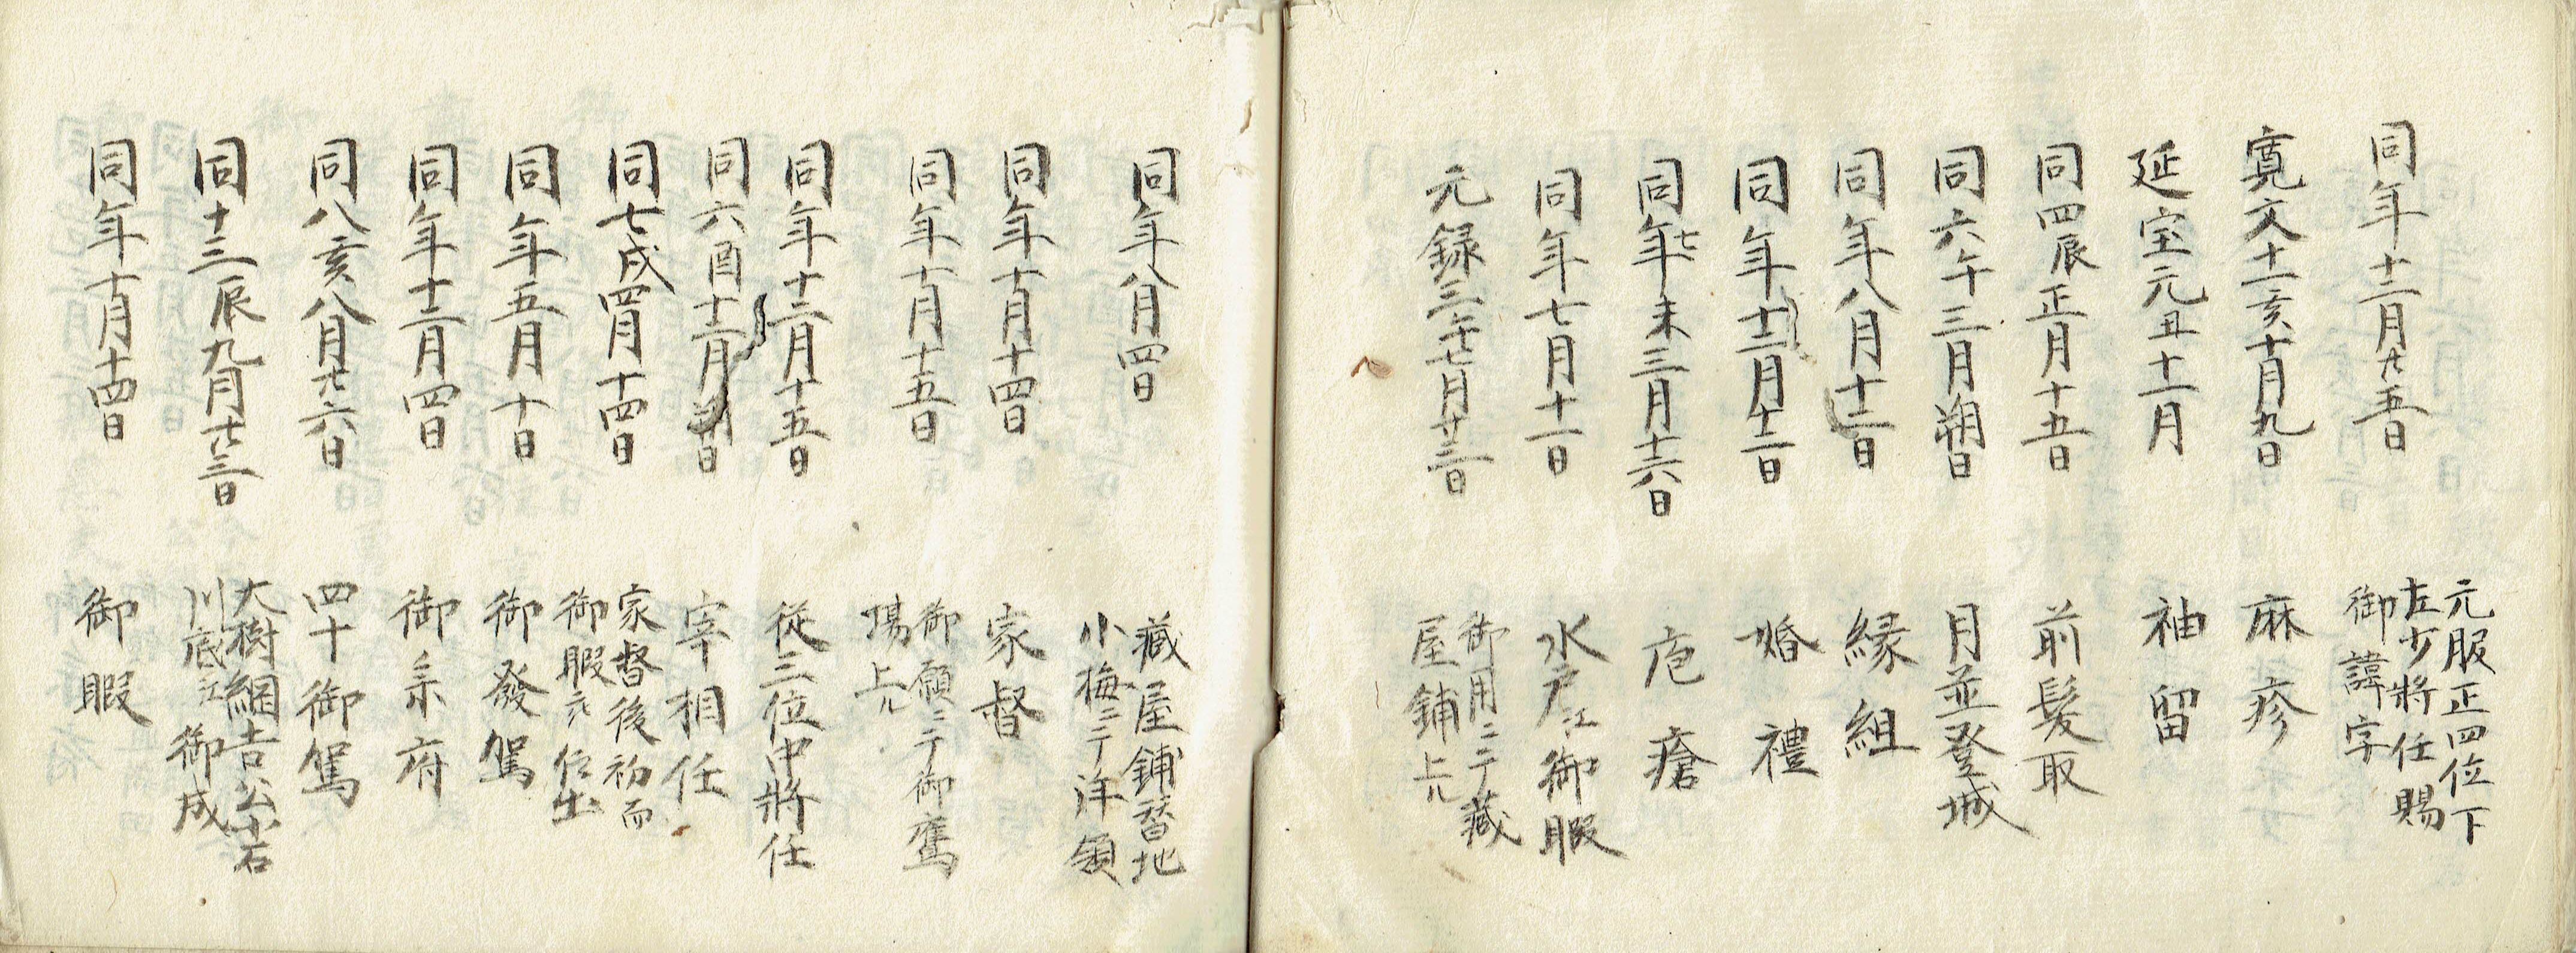 同年十二月廿五日
元服正四位下
左少將任賜
御諱字
寛文十一亥十月九日
麻疹
延宝元丑十一月
袖留
同四辰正月十五日
前髪取
同六午三月朔日
月並登城
同年八月十二日
縁組
同年十二月十二日
婚禮
同七年未三月十六日
疱瘡
同年七月十一日
水戸江御暇
元録三午七月廿三日
御用ニ而藏
屋鋪上ル
同年八月四日
藏屋鋪替地
小梅ニ而拝領
同年十月十四日
家督
同年十月十五日
御願ニ而御鷹
場上ル
同年十二月十五日
從三位中將任
同六酉十二月朔日
宰相任
同七戌四月十四日
家督後初而
御暇被仰出
同年五月十日
御發駕
同年十二月四日
御参府
同八亥八月廿六日
四十御駕
同十三辰九月廿三日
大樹綱吉公小石
川底江御成
同年十月十四日
御暇